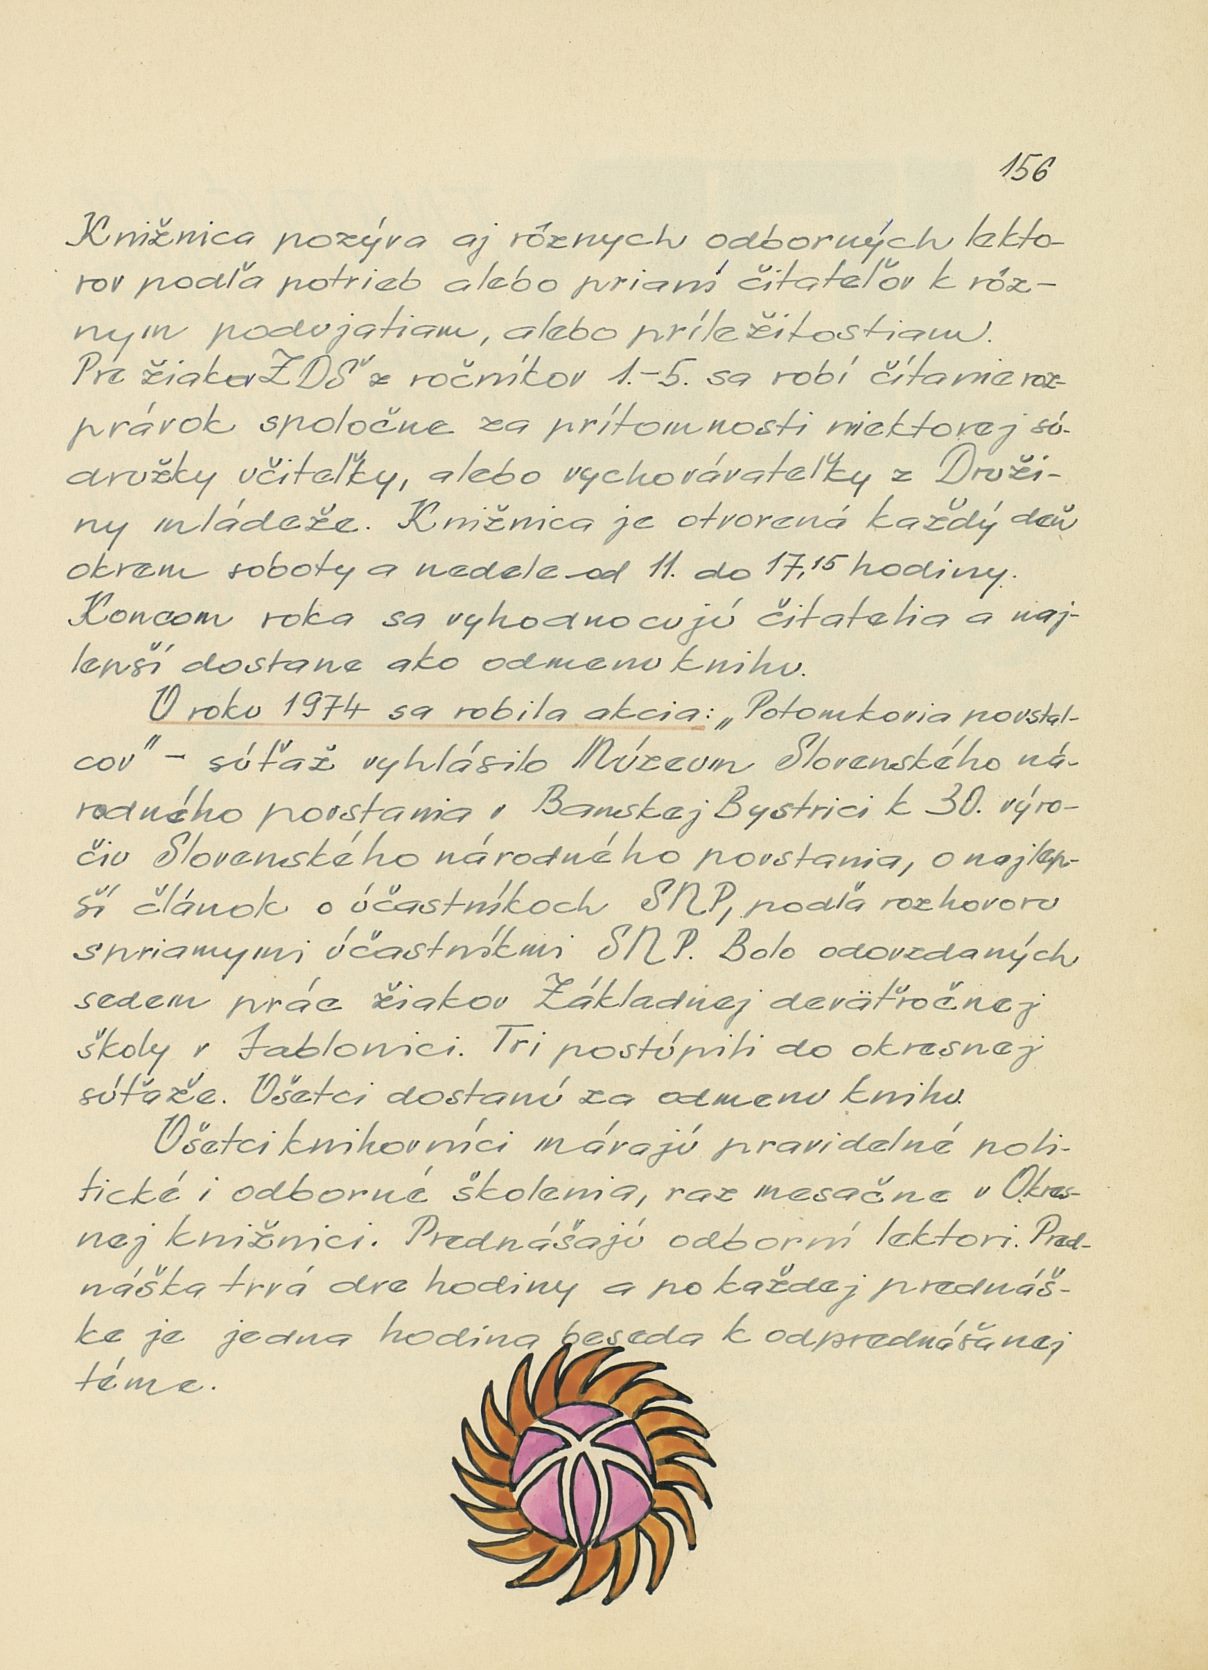 156
Knižnica pozýva aj rôznych odborných lekto-
rov podľa potrieb alebo prianí čitateľov k rôz-
nym podujatiam, alebo príležitostiam.
Pre žiakov ZDŠ z ročníkov 1.-5. sa robí čítanie roz-
právok spoločne za prítomnosti niektorej sú-
družky učiteľky, alebo vychovávateľky z Druži-
ny mládeže. Knižnica je otvorená každý deň
okrem soboty a nedele od 11. do 17,15 hodiny.
Koncom roka sa vyhodnocujú čitatelia a naj-
lepší dostane ako odmenu knihu.
V roku 1974 sa robila akcia: „Potomkovia povstal-
cov" - súťaž vyhlásilo Múzeum Slovenského ná-
rodného povstania v Banskej Bystrici k 30. výro-
čiu Slovenského národného povstania, o najlep-
ší článok o účastníkoch SNP, podľa rozhovoru
spriamymi účastníkmi SNP. Bolo odovzdaných
sedem prác žiakov Základnej deväťročnej
školy v Jablonici. Tri postúpili do okresnej
súťaže. Všetci dostanú za odmenu knihu.
Všetci knihovníci mávajú pravidelné poli-
tické i odborné školenia, raz mesačne v Okres-
nej knižnici. Prednášajú odborní lektori. Pred-
náška trvá dve hodiny a po každej prednáš-
ke je jedna hodina beseda k odprednášanej
téme.